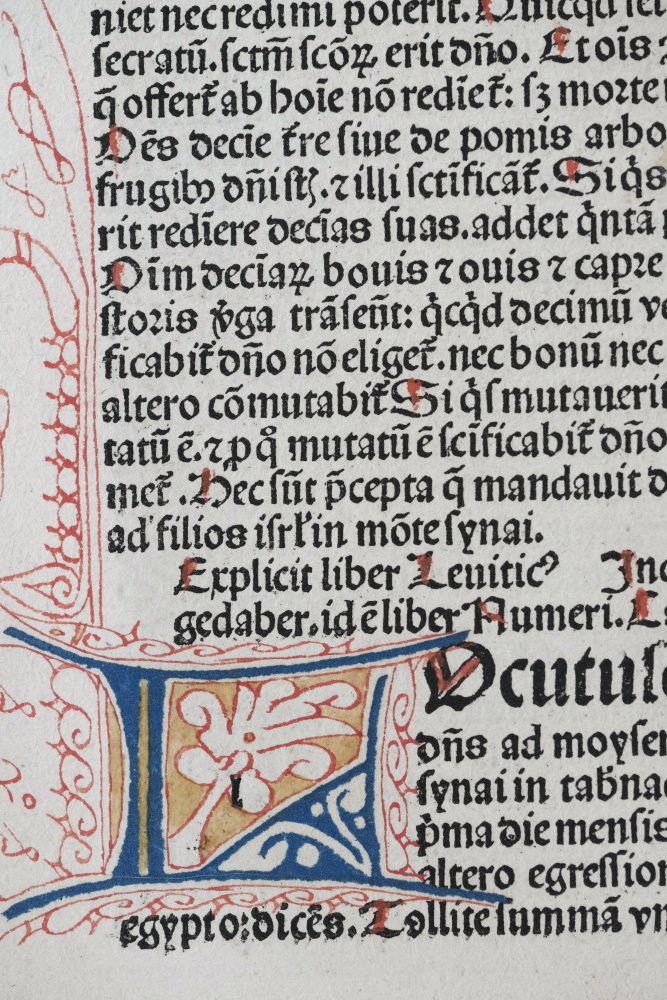 niet nec redimi poterit. Quicqd sel
secratū. sctm̄ scōꝝ erit dño. Et oīs
q̄ offert᷑ ab hoīe nō redīet᷑: sꝫ morte
Dēs decīe t᷑re siue de pomis arbo
frugibꝰ dñi st̄. ⁊ illi sctīficāt᷑. Si qͥs
rit redīere decīas suas. addet qͥntā
Oīm decīaꝝ bouis ⁊ ouis ⁊ capre
storis v̓ga trāseūt: qͥcqͥd decimū ve
ficabit᷑ dño nō eliget᷑. nec bonū nec
altero cōmutabit᷑ Si qͥs mutaueri
tatū ē. ⁊ ꝓ qͦ mutatū ē scīficabit᷑ dño
met᷑. Hec sūt p̄cepta q̄ mandauit d
ad filios isrl̓ in mōte synai.
Explicit liber Leuiticꝰ Inc
gedaber. id ē liber Numeri.
L Ocutusq
dñs ad moysen
synai in tab̓nac
p̓ma die mensis
altero egression
egypto: dicēs. Tollite summā vn